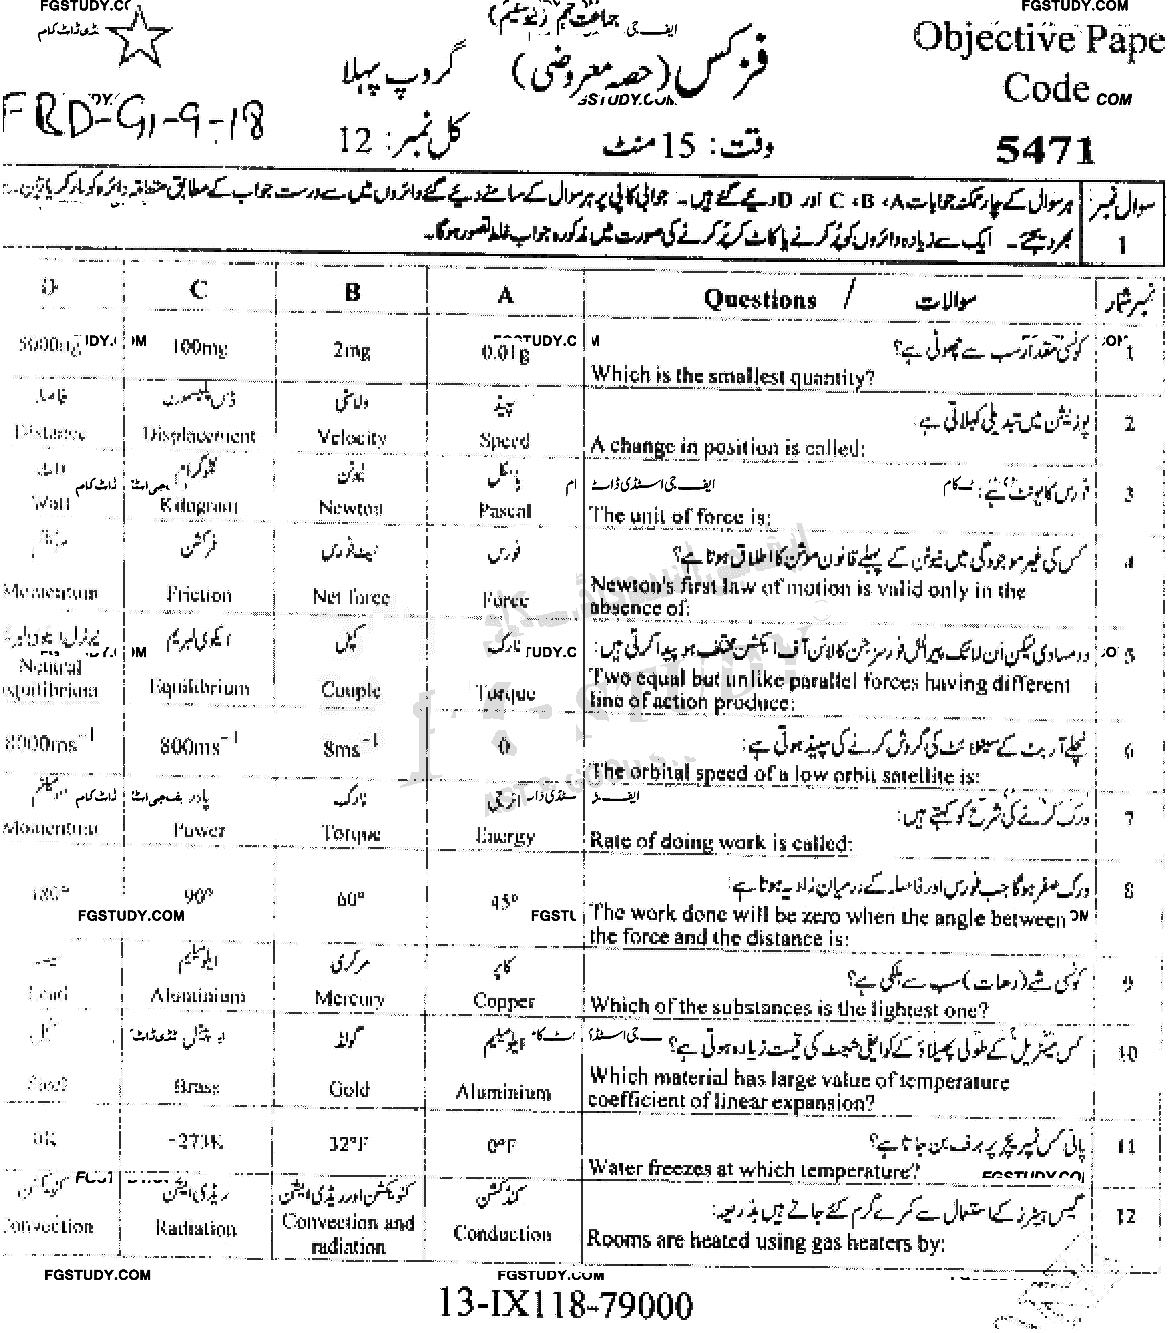 FGSTUDY.CO
FGSTUDY.COM
ایف جی جماعت نہم
Objective Pape
Code COM
5471
فزکس (حصہ معروضی)
گروپ پہلا
GSTUDY.COM
FBD-G1-9-18
وقت: 15 منٹ
کل نمبر: 12
سوال نمبر 1
ہر سوال کے چار ممکنہ جوابات A، B، C اور D دیئے گئے ہیں۔ جوابی کاپی پر ہر سوال کے سامنے دیئے گئے دائروں میں سے درست جواب کے مطابق متعلقہ دائرہ کو مارکر یا پین سے
بھر دیجئے۔ ایک سے زیادہ دائروں کو پُر کرنے یا کاٹ کر پُر کرنے کی صورت میں مذکورہ جواب غلط تصور ہوگا۔
D C B A Questions / سوالات نمبر شمار
1 کونسی مقدار سب سے چھوٹی ہے؟
Which is the smallest quantity?
0.01g 2mg 100mg 5000ng
2 پوزیشن میں تبدیلی کہلاتی ہے:
A change in position is called:
سپیڈ ولاسٹی ڈس پلیسمنٹ فاصلہ
Speed Velocity Displacement Distance
3 فورس کا یونٹ ہے:
The unit of force is:
پاسکل نیوٹن کلوگرام واٹ
Pascal Newton Kilogram Watt
4 کس کی غیر موجودگی میں نیوٹن کے پہلے قانون موشن کا اطلاق ہوتا ہے؟
Newton's first law of motion is valid only in the
absence of:
فورس نیٹ فورس فرکشن
Force Net force Friction Momentum
5 دو مساوی لیکن ان لائیک پیرالل فورسز جن کا لائن آف ایکشن مختلف ہو پیدا کرتی ہیں:
Two equal but unlike parallel forces having different
line of action produce:
ٹارک کپل ایکوی لبریم
Torque Couple Equilibrium Neutral
equilibrium
6 نچلے آربٹ کے سیٹلائٹ کی گردش کرنے کی سپیڈ ہوتی ہے:
The orbital speed of a low orbit satellite is:
0 8ms⁻¹ 800ms⁻¹ 8000ms⁻¹
7 ورک کرنے کی شرح کو کہتے ہیں:
Rate of doing work is called:
انرجی ٹارک پاور
Energy Torque Power Momentum
8 ورک صفر ہوگا جب فورس اور فاصلہ کے درمیان زاویہ ہوتا ہے:
The work done will be zero when the angle between
the force and the distance is:
45° 60° 90° 180°
FGSTUDY.COM
9 کونسی شے (دھات) سب سے ہلکی ہے؟
Which of the substances is the lightest one?
کاپر مرکری ایلومینیم
Copper Mercury Aluminium Lead
10 کس میٹریل کے طولی پھیلاؤ کے کوایفی شینٹ کی قیمت زیادہ ہوتی ہے؟
Which material has large value of temperature
coefficient of linear expansion?
ایلومینیم گولڈ پیتل
Aluminium Gold Brass
11 پانی کس ٹمپریچر پر برف بن جاتا ہے؟
Water freezes at which temperature?
0°F 32°F -273K 0K
FGSTUDY.CO
12 گیس ہیٹرز کے استعمال سے کمرے گرم کئے جاتے ہیں بذریعہ:
Rooms are heated using gas heaters by:
کنڈکشن کنویکشن اور ریڈی ایشن ریڈی ایشن کنویکشن
Conduction Convection and
radiation Radiation Convection
FGSTUDY.COM
FGSTUDY.COM
13-IX118-79000